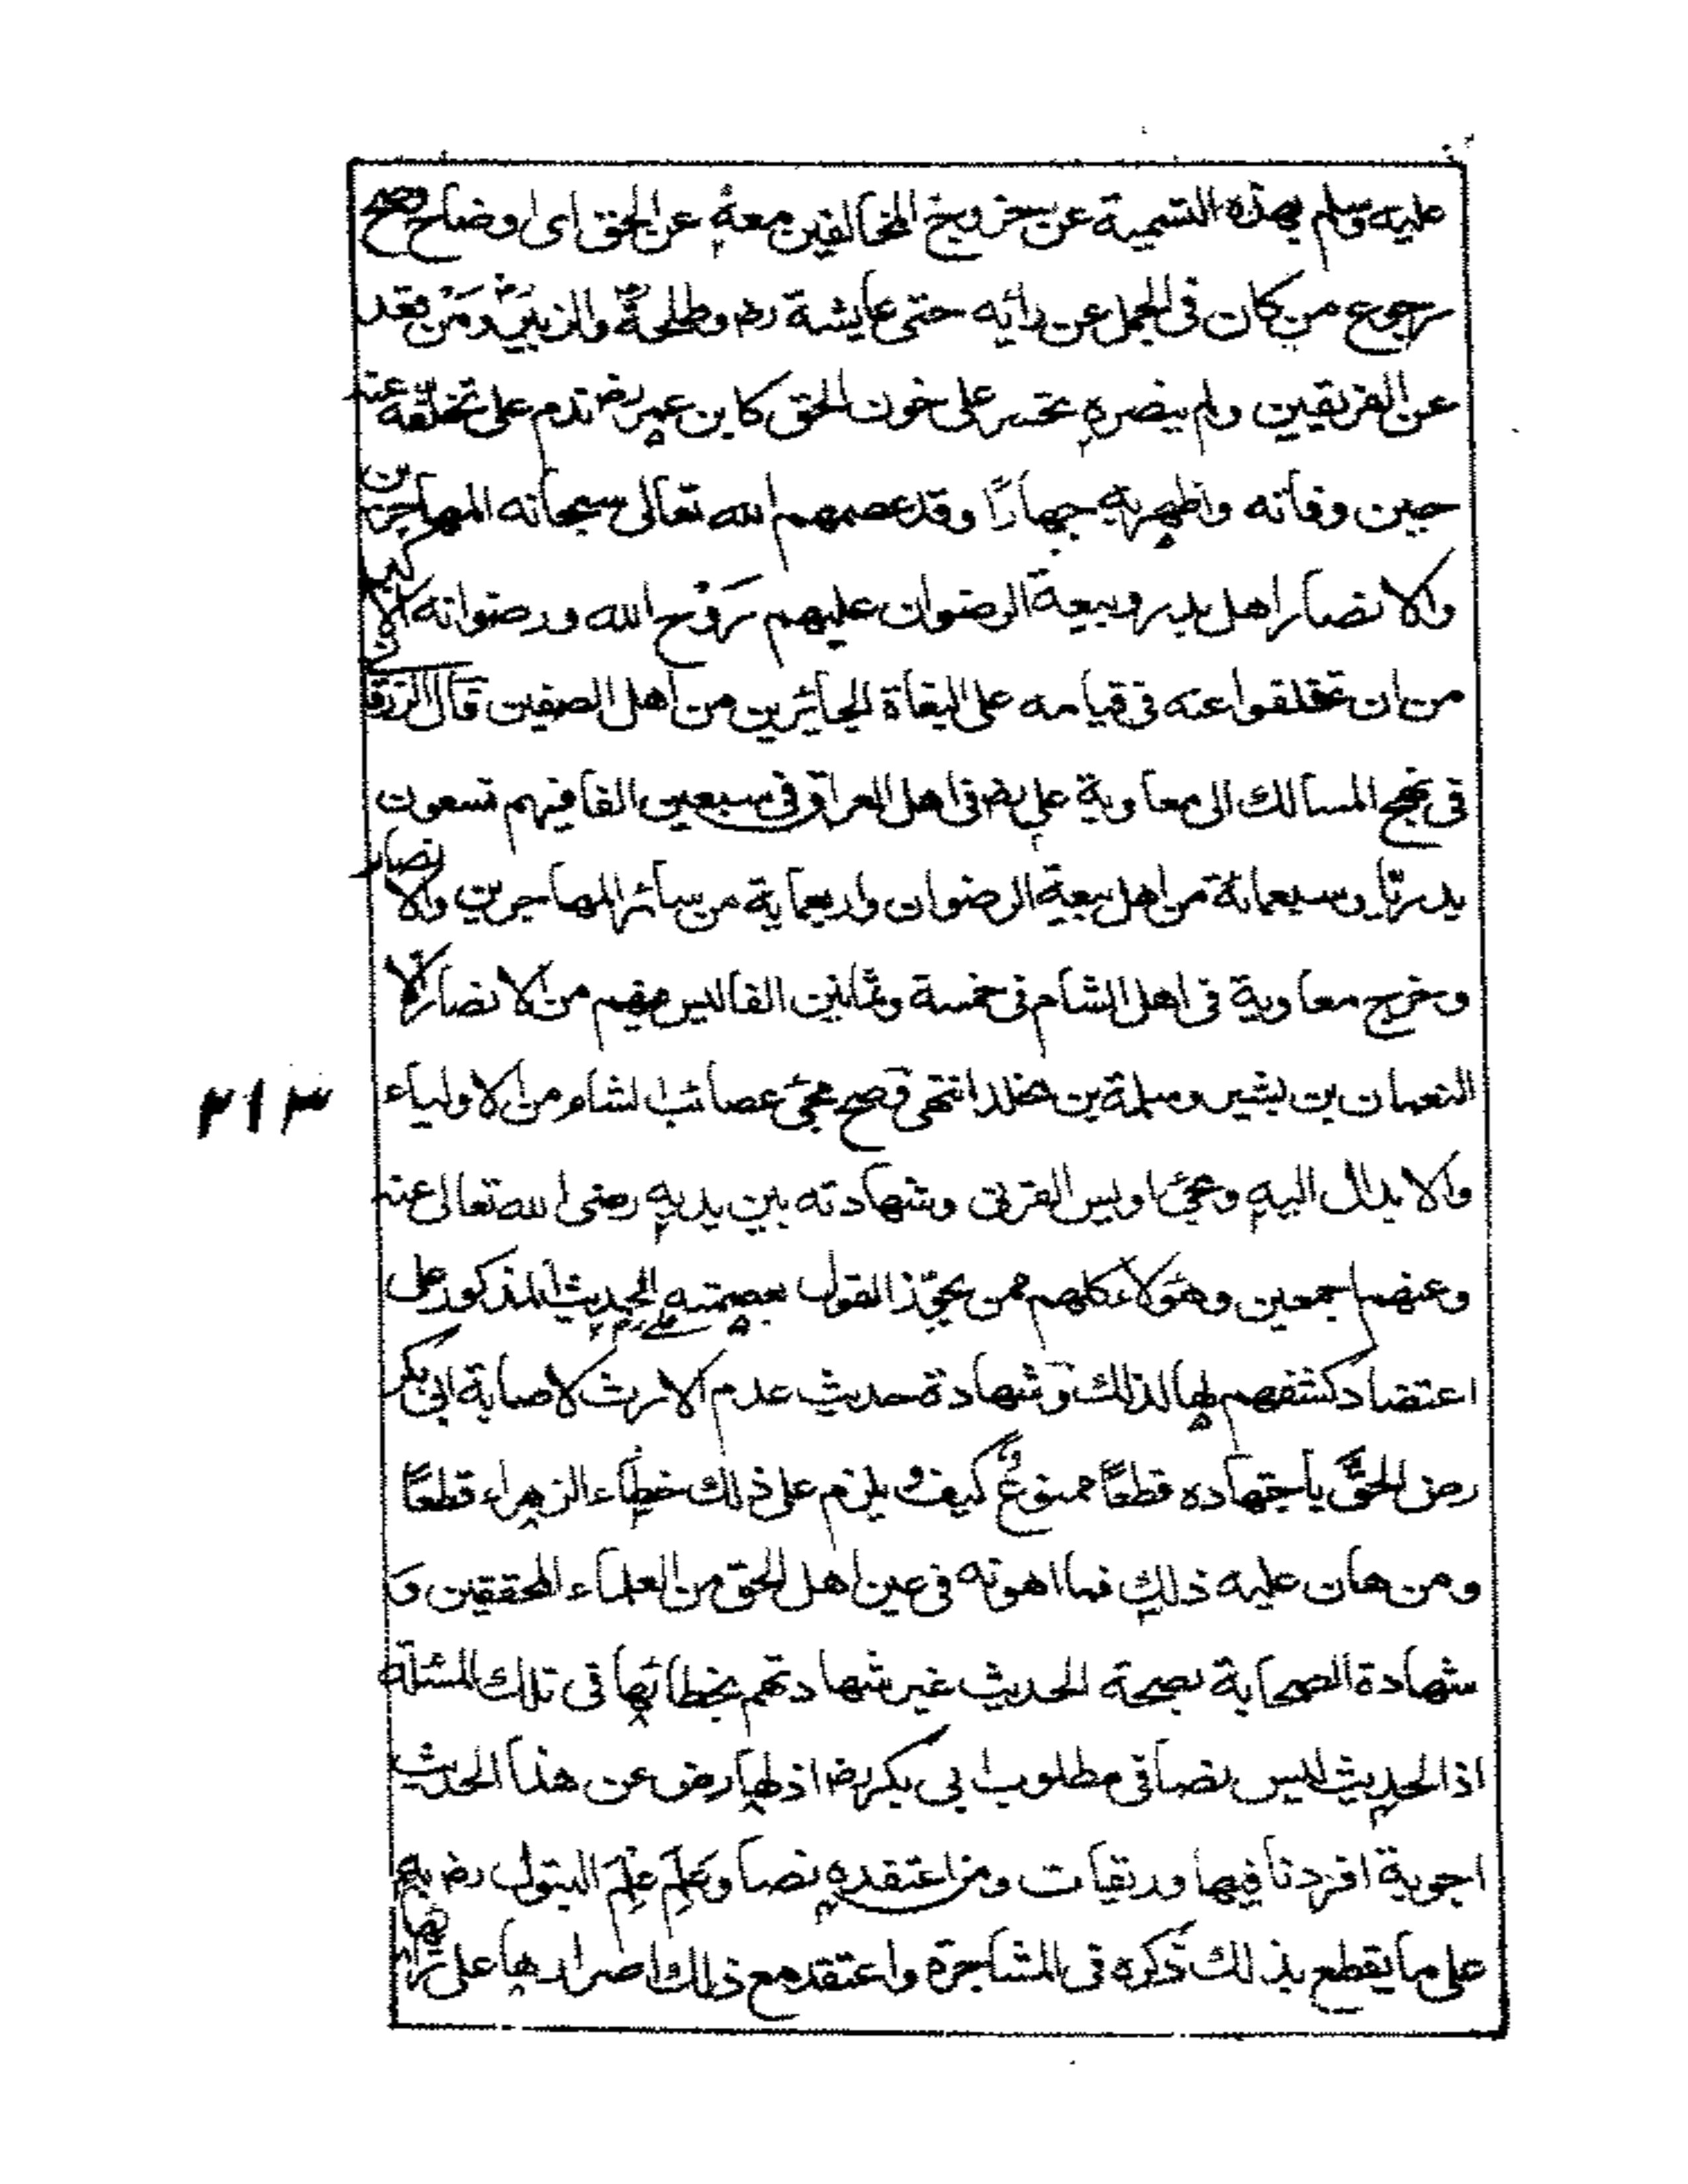 عليه وسلم بهذه التسمية عن خروج المخالفين معه عن الحق اى اوضاح وصح
رجوع من كان فى الجمل عن رأيه حتى عايشة رض وطلحة والزبير ومن تقعد
عن الفريقين ولم ينصره تحسر على فوت الحق كابن عمر رض ندم على تخلفه عنه
حين وفاته واظهر به جهارًا وقد عصمهم الله تعالى سبحانه المهاجرين
والانصار اهل بدر وبيعة الرضوان عليهم رَوْح الله ورضوانه الاكبر
من ان تخلفوا عنه فى قيامه على البغاة الجائرين من اهل الصفين قال الزرقانى
فى نهج المسالك الى معاوية على رض فى اهل العراق فى سبعين الفا فيهم تسعون
بدريًّا وسبعمائة من اهل بيعة الرضوان واربعماية من سائر المهاجرين والانصار
وخرج معاوية فى اهل الشام فى خمسة وثمانين الفا ليس فيهم من الانصار الا
النعمان بن بشير ومسلمة بن مخلد انتهى وصح مجئ عصائب الشام من الاولياء
والابدال اليه ومجئ اويس القرنى وشهادته بين يديه رضى الله تعالى عنه
وعنهم اجمعين وهؤلاء كلهم ممن يجوّز القول بعصمته الحديث المذكور على
اعتضاد كشفهم لها لذلك وشهادة حديث عدم الارث لاصابة ابى بكر
رض الحقَّ باجتهاده قطعًا ممنوعٌ كيف ويلزم على ذلك خطاء الزهراء قطعًا
ومن هان عليه ذلك فما اهونه فى عين اهل الحق من العلماء المحققين وَ
شهادة الصحابة بصحة الحديث غير شهادتهم بخطائها فى تلك المسئلة
اذ الحديث ليس نصا فى مطلوب ابى بكر رض اذ لها رض عن هذا الحديث
اجوبة افردنا فيها وريقات ومن اعتقده نصا وعَلِمَ عِلْمَ البتول رض به
على ما يقطع بذلك ذكره فى المشاجرة واعتقد مع ذلك اصرارها على نزاعها
٢١٣